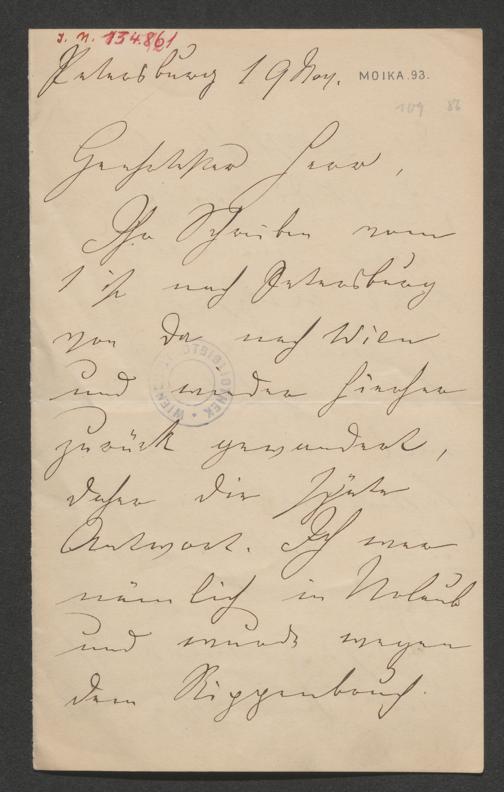 J. N. 134.861
Petersburg 19 Nov. MOIKA.93.
109 86
Geehrtester Herr,
Ihr Schreiben vom
1 ist nach Petersburg
von da nach Wien
und wieder hierher
zurück gewandert,
daher die späte
Antwort. Ich war
nämlich in Urlaub
und wurde wegen
dem Rippenbruch.